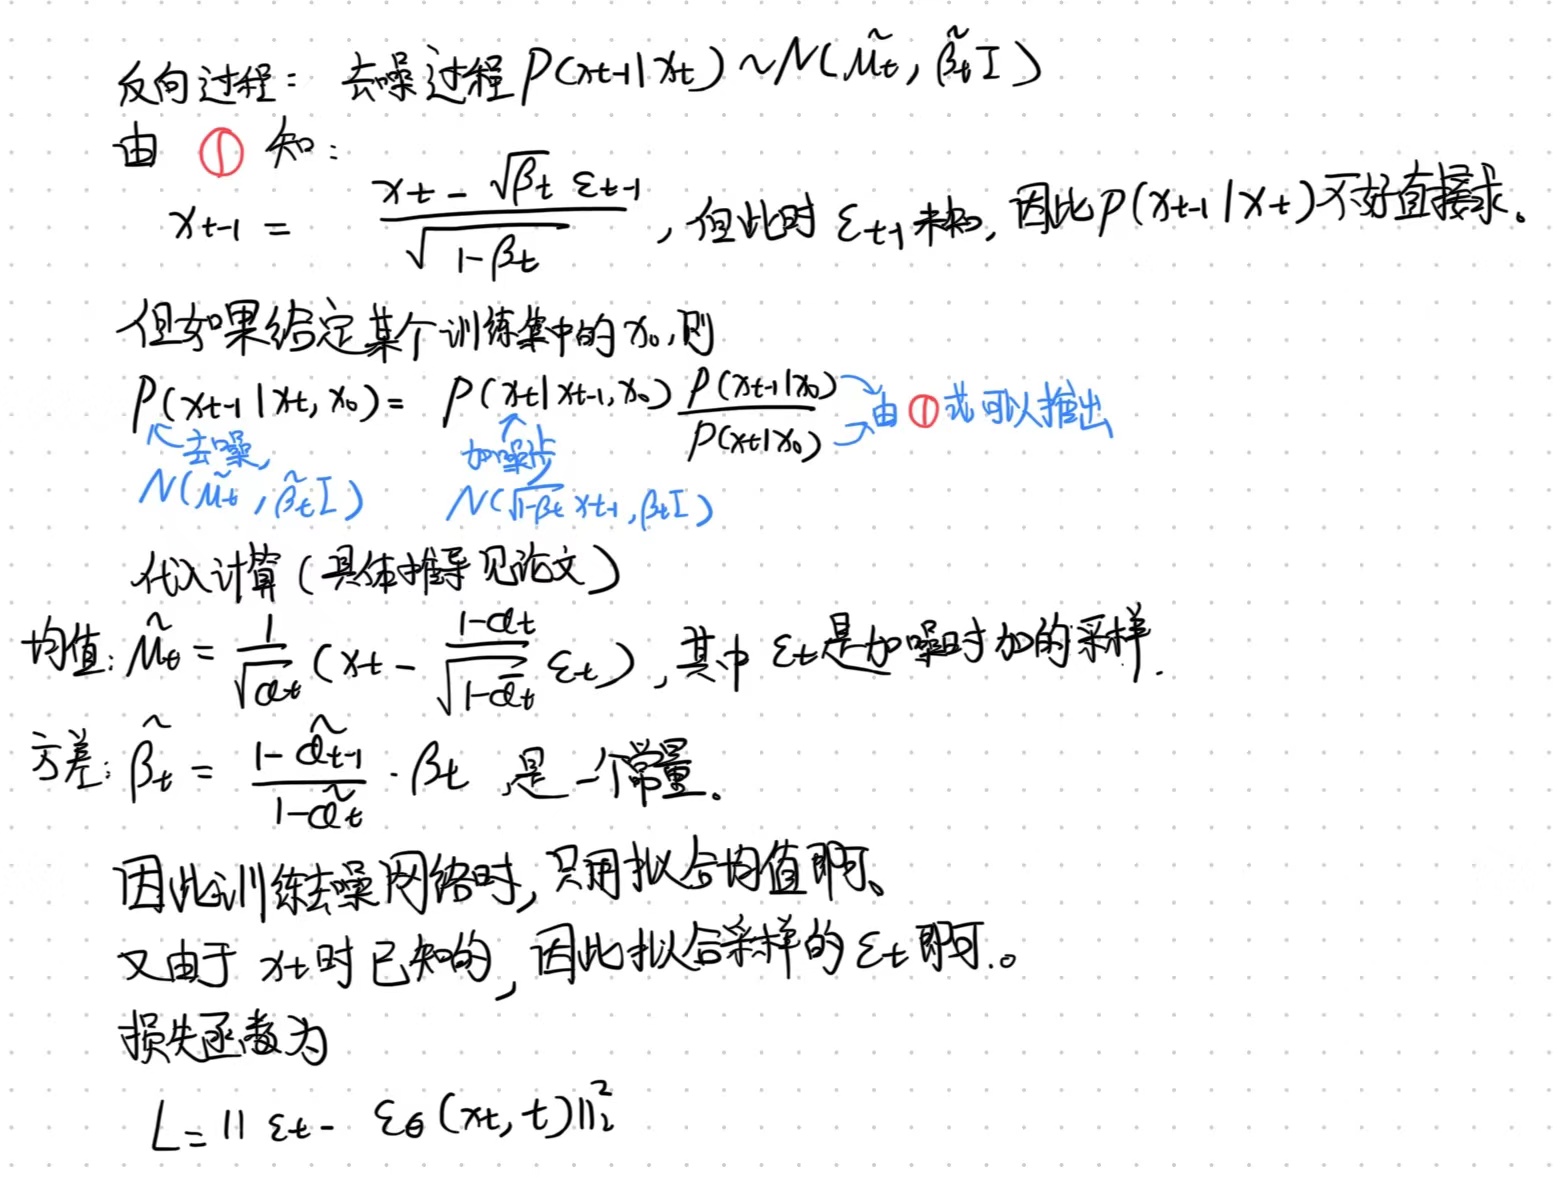 反向过程: 去噪过程 P(xt-1|xt) ~ N(μ̃t, β̃t I)
由 ① 知:
xt-1 = (xt - √βt εt-1) / √(1-βt) , 但此时 εt-1 未知, 因此 P(xt-1|xt) 不好直接求。
但如果给定某个训练集中的 x0, 则
P(xt-1|xt, x0) = P(xt|xt-1, x0) P(xt-1|x0) / P(xt|x0) 由 ① 式可以推出
去噪, 加噪步
N(μ̃t, β̃t I) N(√(1-βt) xt-1, βt I)
代入计算 (具体推导见论文)
均值: μ̃t = 1/√αt (xt - (1-αt)/√(1-ᾱt) εt) , 其中 εt 是加噪时加的采样.
方差: β̃t = (1-α̃t-1)/(1-α̃t) · βt 是一个常量。
因此训练去噪网络时, 只用拟合均值即可。
又由于 xt 时已知的, 因此拟合采样的 εt 即可.。
损失函数为
L = || εt - εθ(xt, t)||₂²